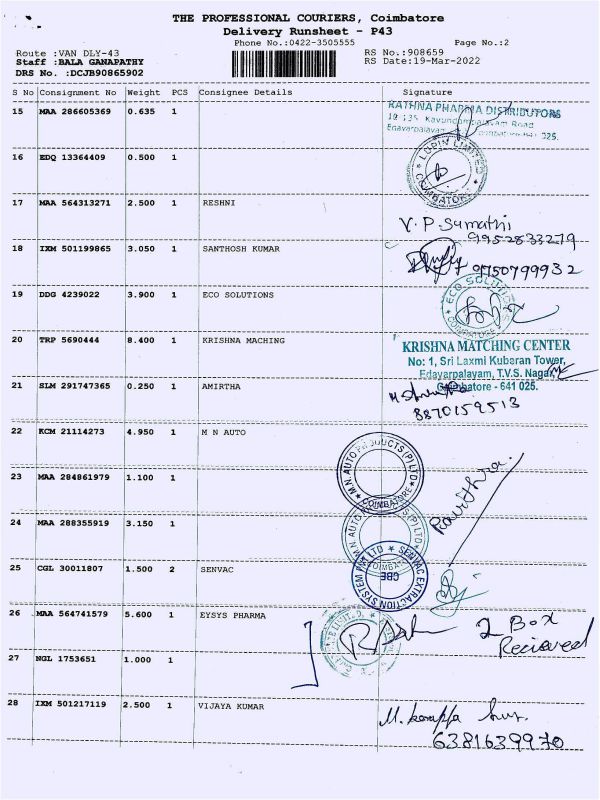 THE PROFESSIONAL COURIERS, Coimbatore
Delivery Runsheet - P43
Phone No.:0422-3505555 Page No.:2
Route :VAN DLY-43 RS No.:908659
Staff :BALA GANAPATHY RS Date:19-Mar-2022
DRS No. :DCJB90865902
S No Consignment No Weight PCS Consignee Details Signature
15 MAA 286605369 0.635 1 RATHNA PHARMA DISTRIBUTORS
Road
Edayarpalayam 025.
16 EDQ 13364409 0.500 1 LUPIN LIMITED
COIMBATORE
17 MAA 564313271 2.500 1 RESHNI
V.P.Sumathi
9952833279
18 IXM 501199865 3.050 1 SANTHOSH KUMAR
9750799932
19 DDG 4239022 3.900 1 ECO SOLUTIONS ECO SOLUTIONS
20 TRP 5690444 8.400 1 KRISHNA MACHING KRISHNA MATCHING CENTER
No: 1, Sri Laxmi Kubaran Tower,
Edayarpalayam, T.V.S. Nagar,
Coimbatore - 641 025.
21 SLM 291747365 0.250 1 AMIRTHA
8870159513
22 KCM 21114273 4.950 1 M N AUTO
M.N. AUTO PRODUCTS (P) LTD
COIMBATORE
23 MAA 284861979 1.100 1
Pavithra.
24 MAA 288355919 3.150 1
M.N. AUTO PRODUCTS (P) LTD
25 CGL 30011807 1.500 2 SENVAC
SENVAC EXTRACTION SYSTEM PVT LTD
CBE
26 MAA 564741579 5.600 1 EYSYS PHARMA
2 Box
Recieved
27 NGL 1753651 1.000 1
28 IXM 501217119 2.500 1 VIJAYA KUMAR
6381639970